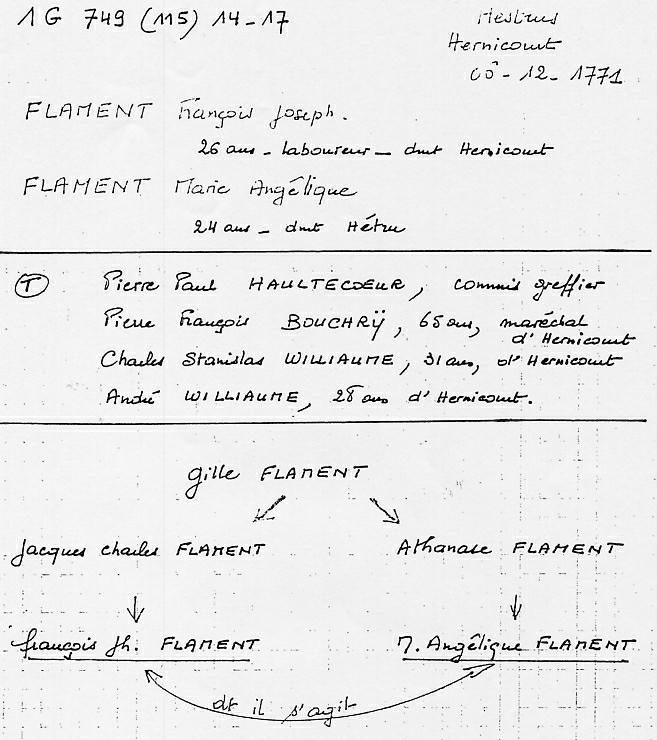 1 G 749 (115) 14-17
Hestrus
Hernicourt
- 12 - 1771
FLAMENT François Joseph.
26 ans - laboureur - dmt Hernicourt
FLAMENT Marie Angélique
24 ans - dmt Hétru
T Pierre Paul HAULTECOEUR, commis greffier
Pierre François BOUCHRŸ, 65 ans, maréchal
d'Hernicourt
Charles Stanislas WILLIAUME, 31 ans, d'Hernicourt
André WILLIAUME, 28 ans d'Hernicourt.
gille FLAMENT
Jacques Charles FLAMENT Athanase FLAMENT
françois Jh. FLAMENT M. Angélique FLAMENT
dt il s'agit